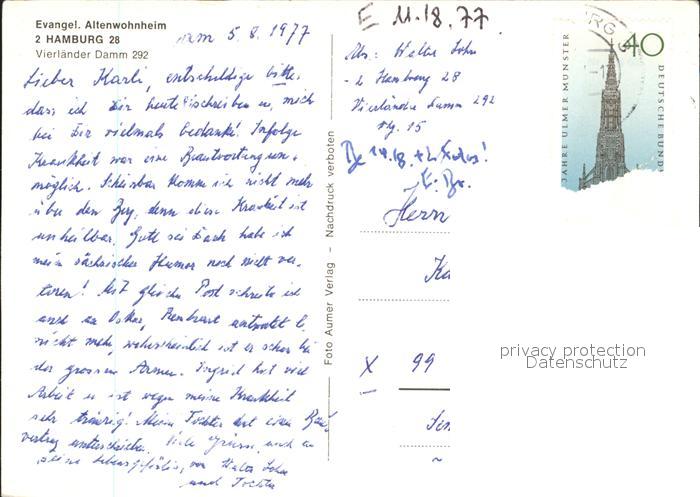 Evangel. Altenwohnheim
2 HAMBURG 28
Vierländer Damm 292
vom 5.8.1977
Lieber Karli, entschuldige bitte,
dass ich Dir heute schreiben u. mich
bei Dir vielmals bedanke! Infolge
Krankheit war eine Beantwortung un-
möglich. Scheinbar komme ich nicht mehr
über den Berg, denn diese Krankheit ist
unheilbar. Gott sei Dank habe ich
mein sächsischer Humor noch nicht ver-
loren! Mit gleicher Post schreibe ich
auch an Oskar, antwortet
nicht mehr, wahrscheinlich ist er schon bei
der grossen Armee. Ingrid hat viel
Arbeit u. ist wegen meine Krankheit
sehr traurig! Meine Tochter hat einen
vertrag unterschrieben. Viele Grüsse, auch an
Deine Lebensgefährtin, von
und Tochter
Foto Aumer Verlag - Nachdruck verboten
E 11.18.77
Abs: Walter
2 Hamburg 28
Vierländer Damm 292
15
Be 14.18.
E. Br.
Herrn
Ka
X 99
40
JAHRE ULMER MÜNSTER
DEUTSCHE BUND
privacy protection
Datenschutz